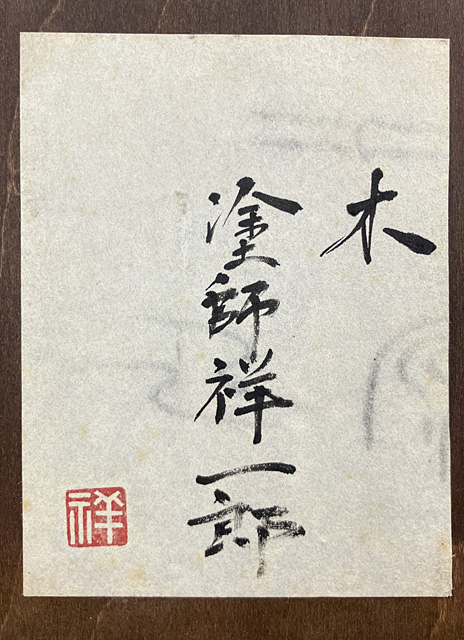 木
塗師祥一郎
祥